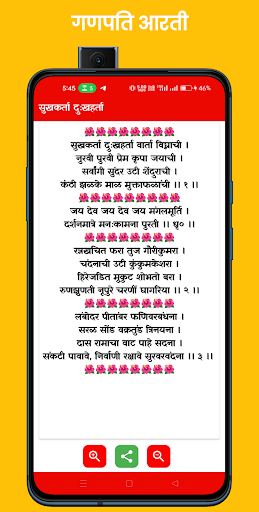 गणपति आरती
5:45 5 46%
सुखकर्ता दुःखहर्ता
सुखकर्ता दुःखहर्ता वार्ता विघ्नाची ।
नुरवी पुरवी प्रेम कृपा जयाची ।
सर्वांगी सुंदर उटी शेंदुराची ।
कंठी झळके माळ मुक्ताफळांची ।। १ ।।
जय देव जय देव जय मंगलमूर्ति ।
दर्शनमात्रे मनःकामना पुरती ।। धृ० ।।
रत्नखचित फरा तुज गौरीकुमरा ।
चंदनाची उटी कुंकुमकेशरा ।
हिरेजडित मुकुट शोभतो बरा ।
रुणझुणती नूपुरे चरणीं घागरिया ।। २ ।।
लंबोदर पीतांबर फणिवरबंधना ।
सरळ सोंड वक्रतुंड त्रिनयना ।
दास रामाचा वाट पाहे सदना ।
संकटी पावावे, निर्वाणी रक्षावे सुरवरवंदना ।। ३ ।।